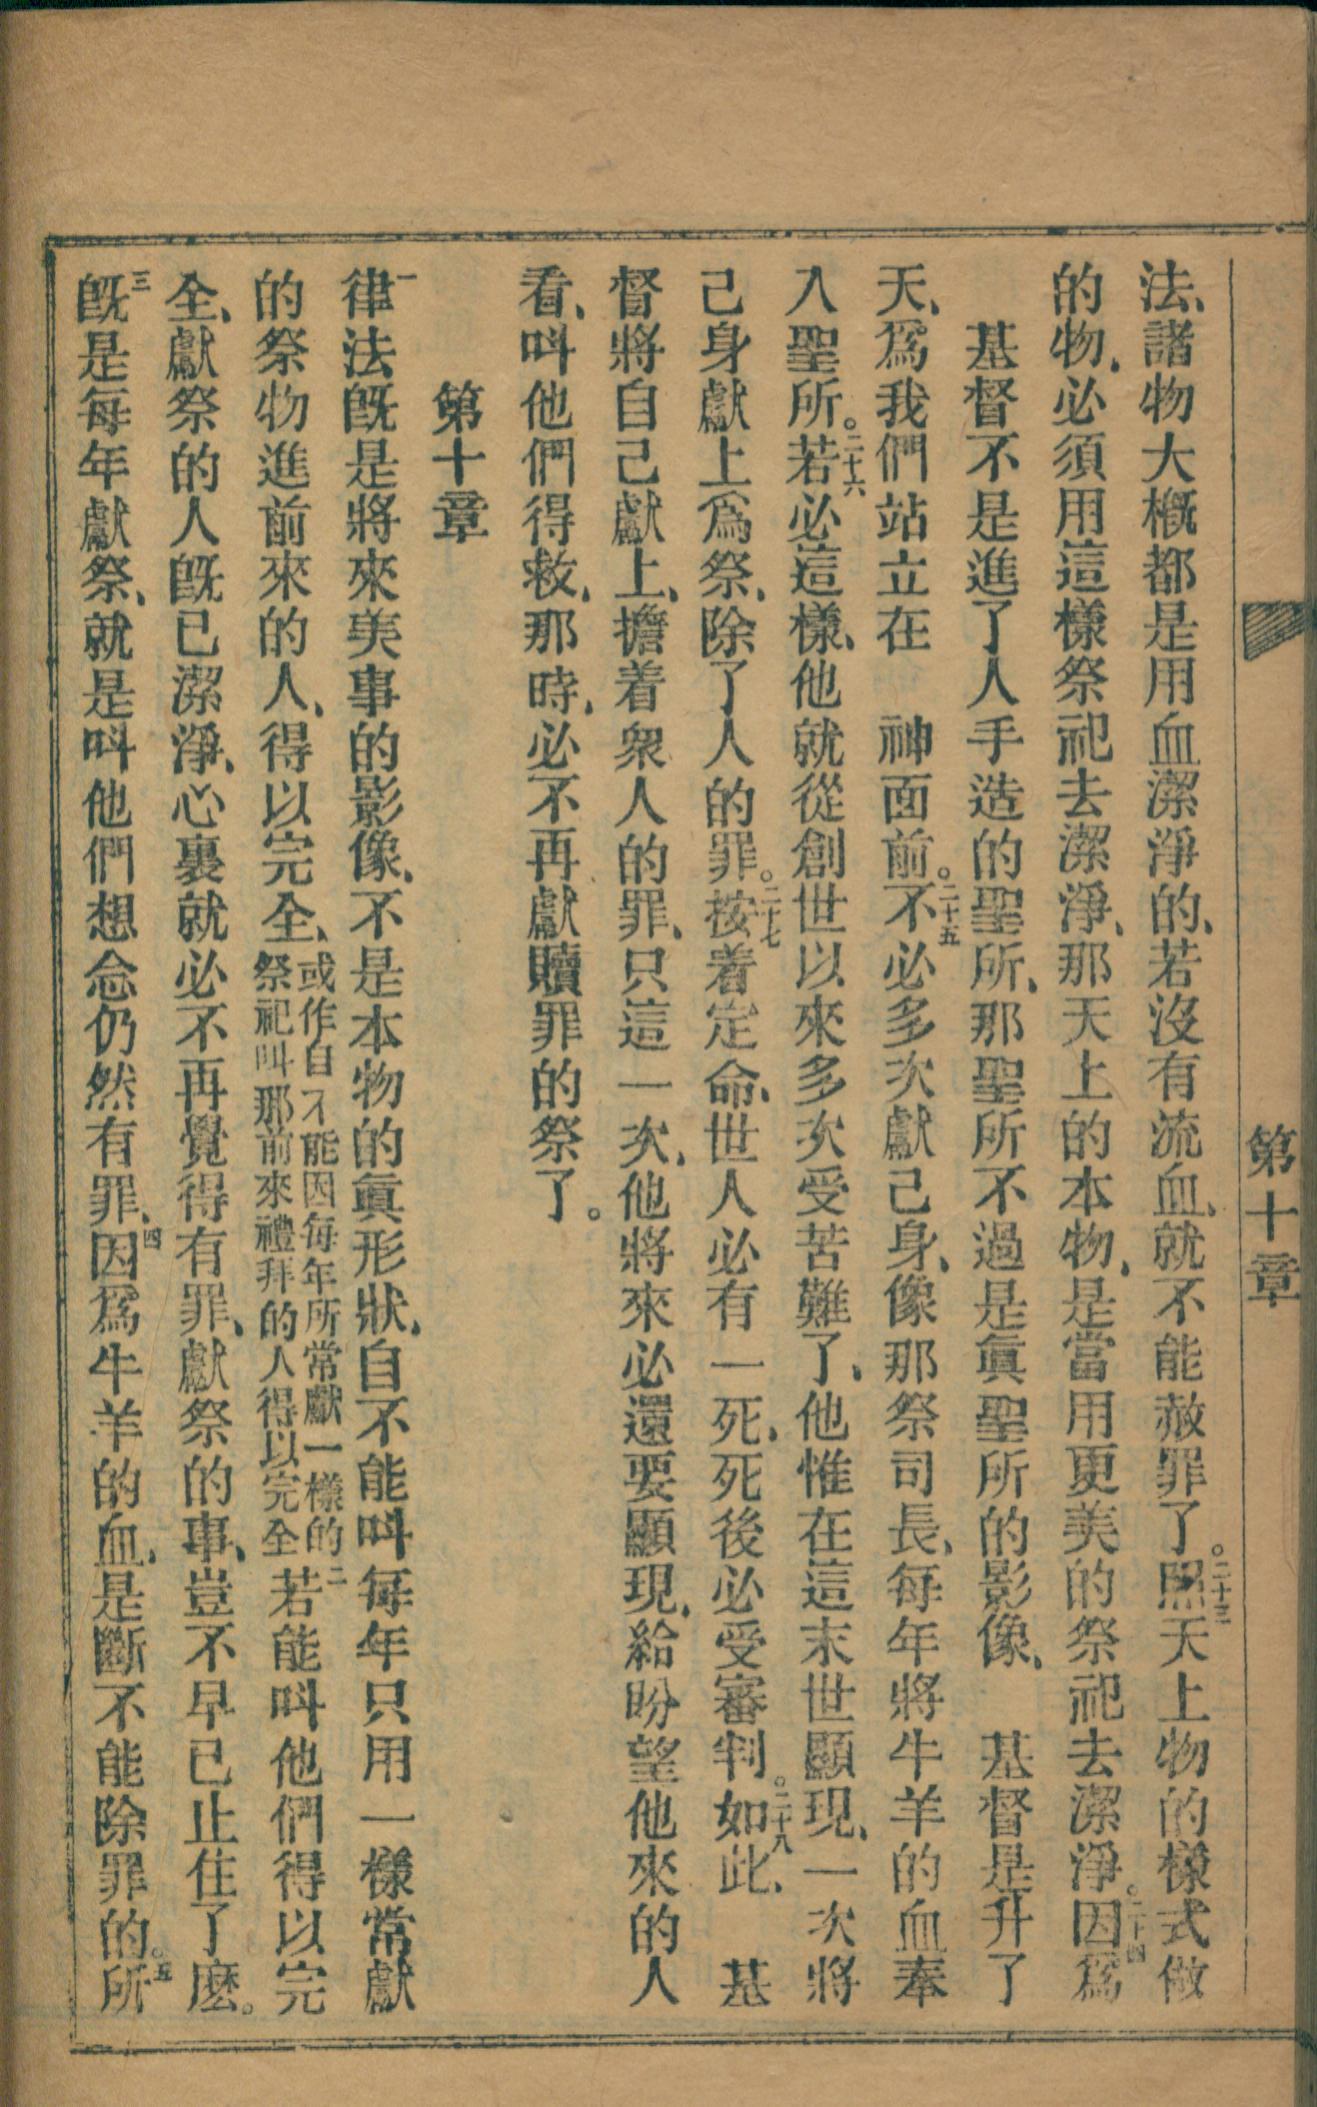 第十章
法、諸物大槪都是用血潔淨的、若沒有流血、就不能赦罪了。二十三照天上物的樣式做
的物、必須用這樣祭祀去潔淨、那天上的本物、是當用更美的祭祀去潔淨。二十四因爲
基督不是進了人手造的聖所、那聖所不過是眞聖所的影像、　基督是升了
天、爲我們站立在　神面前。二十五不必多次獻己身、像那祭司長、每年將牛羊的血奉
入聖所。二十六若必這樣、他就從創世以來多次受苦難了、他惟在這末世顯現、一次將
己身獻上爲祭、除了人的罪。二十七按着定命、世人必有一死、死後必受審判。二十八如此、　基
督將自己獻上、擔着衆人的罪、只這一次、他將來必還要顯現、給盼望他來的人
看、叫他們得救、那時、必不再獻贖罪的祭了。
第十章
一律法旣是將來美事的影像、不是本物的眞形狀、自不能叫每年只用一樣常獻
的祭物進前來的人、得以完全、或作自不能因每年所常獻一樣的祭祀叫那前來禮拜的人得以完全二若能叫他們得以完
全、獻祭的人旣已潔淨、心裏就必不再覺得有罪、獻祭的事、豈不早已止住了麽。
三旣是每年獻祭、就是叫他們想念仍然有罪、四因爲牛羊的血、是斷不能除罪的。五所